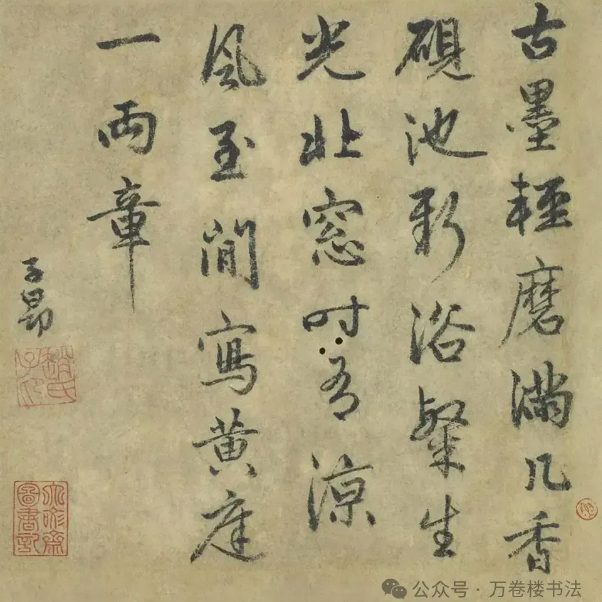 古墨輕磨滿几香
硯池新浴粲生
光北窓时有凉
風至閒寫黄庭
一兩章
子昂
趙氏子昂
大雅齋圖書記
公众号 · 万卷楼书法